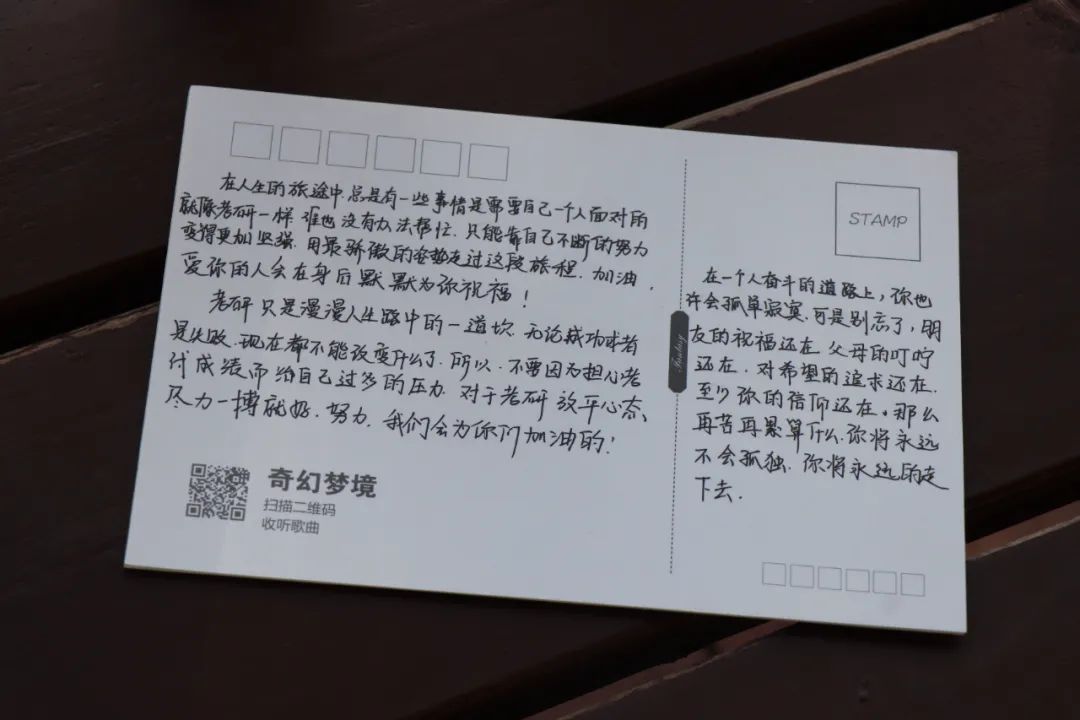 在人生的旅途中.总是有一些事情是需要自己一个人面对的
就像考研一样.谁也没有办法帮忙.只能靠自己不断的努力
变得更加坚强.用最骄傲的姿势走过这段旅程.加油,
爱你的人会在身后默默为你祝福!
考研只是漫漫人生路中的一道坎.无论成功或者
是失败.现在都不能改变什么了.所以.不要因为担心考
付成绩而给自己过多的压力.对于考研放平心态、
尽力一搏就好.努力.我们会为你们加油的!
奇幻梦境
扫描二维码
收听歌曲
Fantasy
STAMP
在一个人奋斗的道路上,你也
许会孤单寂寞.可是别忘了,朋
友的祝福还在.父母的叮咛
还在.对希望的追求还在.
至少你的信仰还在。那么
再苦再累算什么.你将永远
不会孤独.你将永远的走
下去.